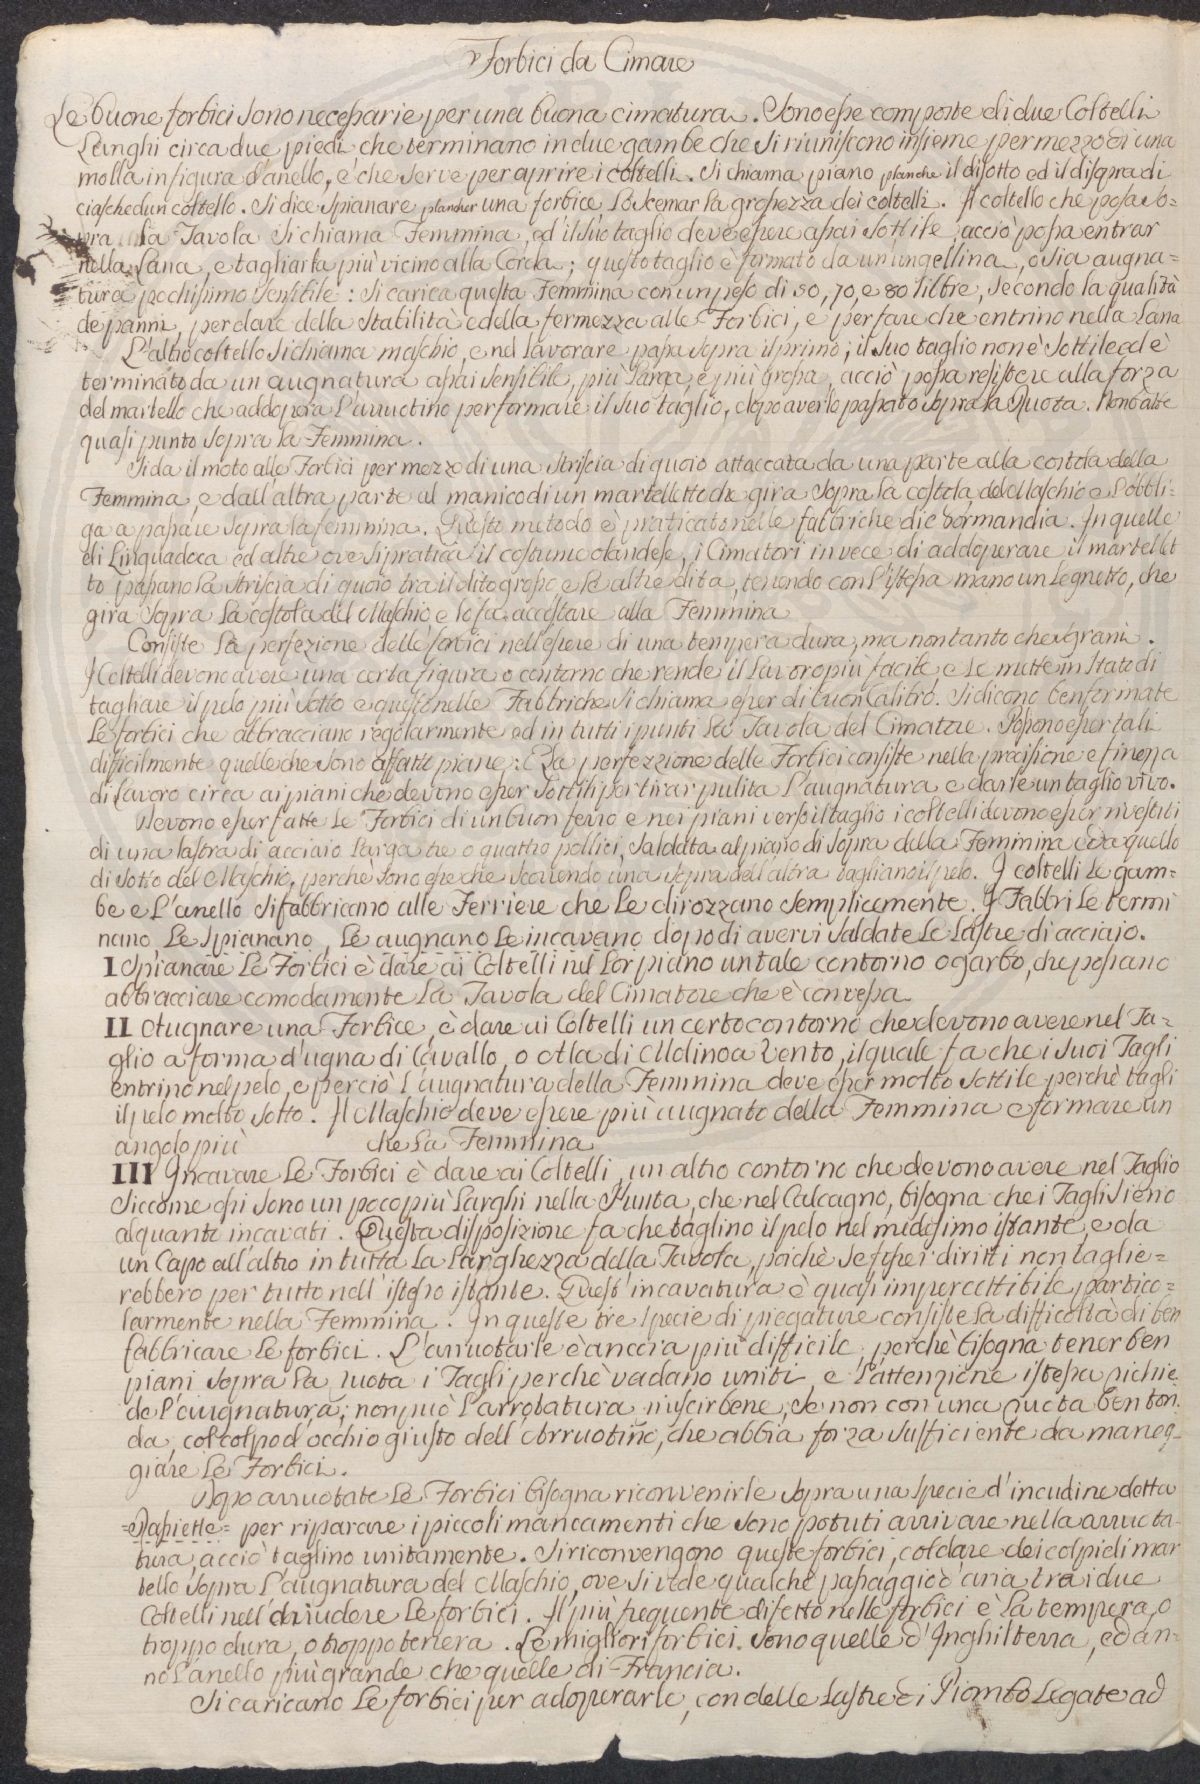 Forbici da Cimare
Le buone forbici sono necessarie per una buona cimatura. Sono esse composte di due Coltelli
Lunghi circa due piedi che terminano in due gambe che si riuniscono insieme per mezzo di una
molla in figura d'anello, e che serve per aprire i coltelli. Si chiama piano planche il disotto ed il disopra di
ciaschedun coltello. Si dice spianare plancher una forbice lo scemar la grossezza dei coltelli. Il coltello che posa so=
pra la Tavola si chiama Femmina, ed il suo taglio deve essere assai sottile, acciò possa entrar
nella Lana, e tagliarla più vicino alla Corda; questo taglio è formato da un'ungellina, o sia augna=
tura pochissimo sensibile: si carica questa Femmina con un peso di 50, 70, e 80 libbre, secondo la qualità
de panni, per dare della stabilità e della fermezza alle Forbici, e per fare che entrino nella Lana
L'altro coltello si chiama maschio, e nel lavorare passa sopra il primo; il suo taglio non è sottile ed è
terminato da un augnatura assai sensibile, più larga, e più grossa, acciò possa resistere alla forza
del martello che addopera l'arruotino per formare il suo taglio, dopo averlo passato sopra la Ruota. Non batte
quasi punto sopra la Femmina.
Si da il moto alle Forbici per mezzo di una striscia di quoio attaccata da una parte alla costola della
Femmina, e dall'altra parte al manico di un martelletto che gira sopra la costola del Maschio e l'obbli=
ga a passare sopra la femmina. Questo metodo è praticato nelle fabbriche di Normandia. In quelle
di Linguadoca ed altre ove si pratica il costume olandese, i Cimatori invece di addoperare il martellet
to passano la striscia di quoio tra il dito grosso e le altre dita, tenendo con l'istessa mano un legnetto, che
gira sopra la costola del Maschio e lo fa accostare alla Femmina
Consiste la perfezione delle forbici nell'essere di una tempera dura, ma non tanto che sgrani.
I Coltelli devono avere una certa figura o contorno che rende il lavoro più facile, e le mette in stato di
tagliare il pelo più sotto e questo nelle Fabbriche si chiama esser di buon Calibro. Si dicono ben formate
le forbici che abbracciano regolarmente ed in tutti i punti la Tavola del Cimatore. Possono esser tali
difficilmente quelle che sono affatto piane. La perfezzione delle Forbici consiste nella precisione e finezza
di lavoro circa ai piani che devono esser sottili per tirar pulita l'augnatura e darle un taglio vivo.
Devono esser fatte le Forbici di un buon ferro e nei piani verso il taglio i coltelli devono esser rivestiti
di una lastra di acciaio larga tre o quattro pollici, saldata al piano di sopra della Femmina e da quello
di sotto del Maschio, perchè sono esse che scorrendo una sopra dell'altra tagliano il pelo. I coltelli le gam=
be e l'anello si fabbricano alle Ferriere che le dirozzano semplicemente. I Fabbri le termi
nano le spianano, le augnano le incavano dopo di avervi saldate le lastre di acciajo.
I Spianare le Forbici è dare ai Coltelli nel lor piano un tale contorno o garbo, che possano
abbracciare comodamente la Tavola del Cimatore che è convessa
II Augnare una Forbice, è dare ai Coltelli un certo contorno che devono avere nel Ta=
glio a forma d'ugna di Cavallo, o Ala di Molino a Vento, il quale fa che i suoi Tagli
entrino nel pelo, e perciò l'augnatura della Femmina deve esser molto sottile perchè tagli
il pelo molto sotto. Il Maschio deve essere più augnato della Femmina e formare un
angolo più che la Femmina
III Incavare le Forbici è dare ai Coltelli un altro contorno che devono avere nel Taglio
Siccome essi sono un poco più larghi nella Punta, che nel Calcagno, bisogna che i Tagli sieno
alquanto incavati. Questa disposizione fa che taglino il pelo nel midesimo istante, e da
un Capo all'altro in tutta la larghezza della Tavola, poichè se fosser diritti non taglie=
rebbero per tutto nell'istesso istante. Quest'incavatura è quasi impercettibile, partico=
larmente nella Femmina. In queste tre specie di piegature consiste la difficoltà di ben
fabbricare le forbici. L'arruotarle è ancora più difficile, perchè bisogna tener ben
piani sopra la ruota i Tagli perchè vadano uniti, e l'attenzione istessa richie
de l'augnatura; non può l'arrotatura riuscir bene, se non con una ruota ben ton
da, col colpo d'occhio giusto dell'Arruotino, che abbia forza sufficiente da maneg=
giare le Forbici.
Dopo arruotate le Forbici bisogna riconvenirle sopra una specie d'incudine detta
=Tassiette= per riparare i piccoli mancamenti che sono potuti arrivare nella arruota=
tura, acciò taglino unitamente. Si riconvengono queste forbici, col dare dei colpi di mar
tello sopra l'augnatura del Maschio, ove si vede qualche passaggio d'aria tra i due
Coltelli nell'chiudere le forbici. Il più frequente difetto nelle forbici è la tempera, o
troppo dura, o troppo tenera. Le migliori forbici sono quelle d'Inghilterra, ed an=
no l'anello più grande che quelle di Francia.
Si caricano le forbici per adoperarle, con delle lastre di Piombo legate ad